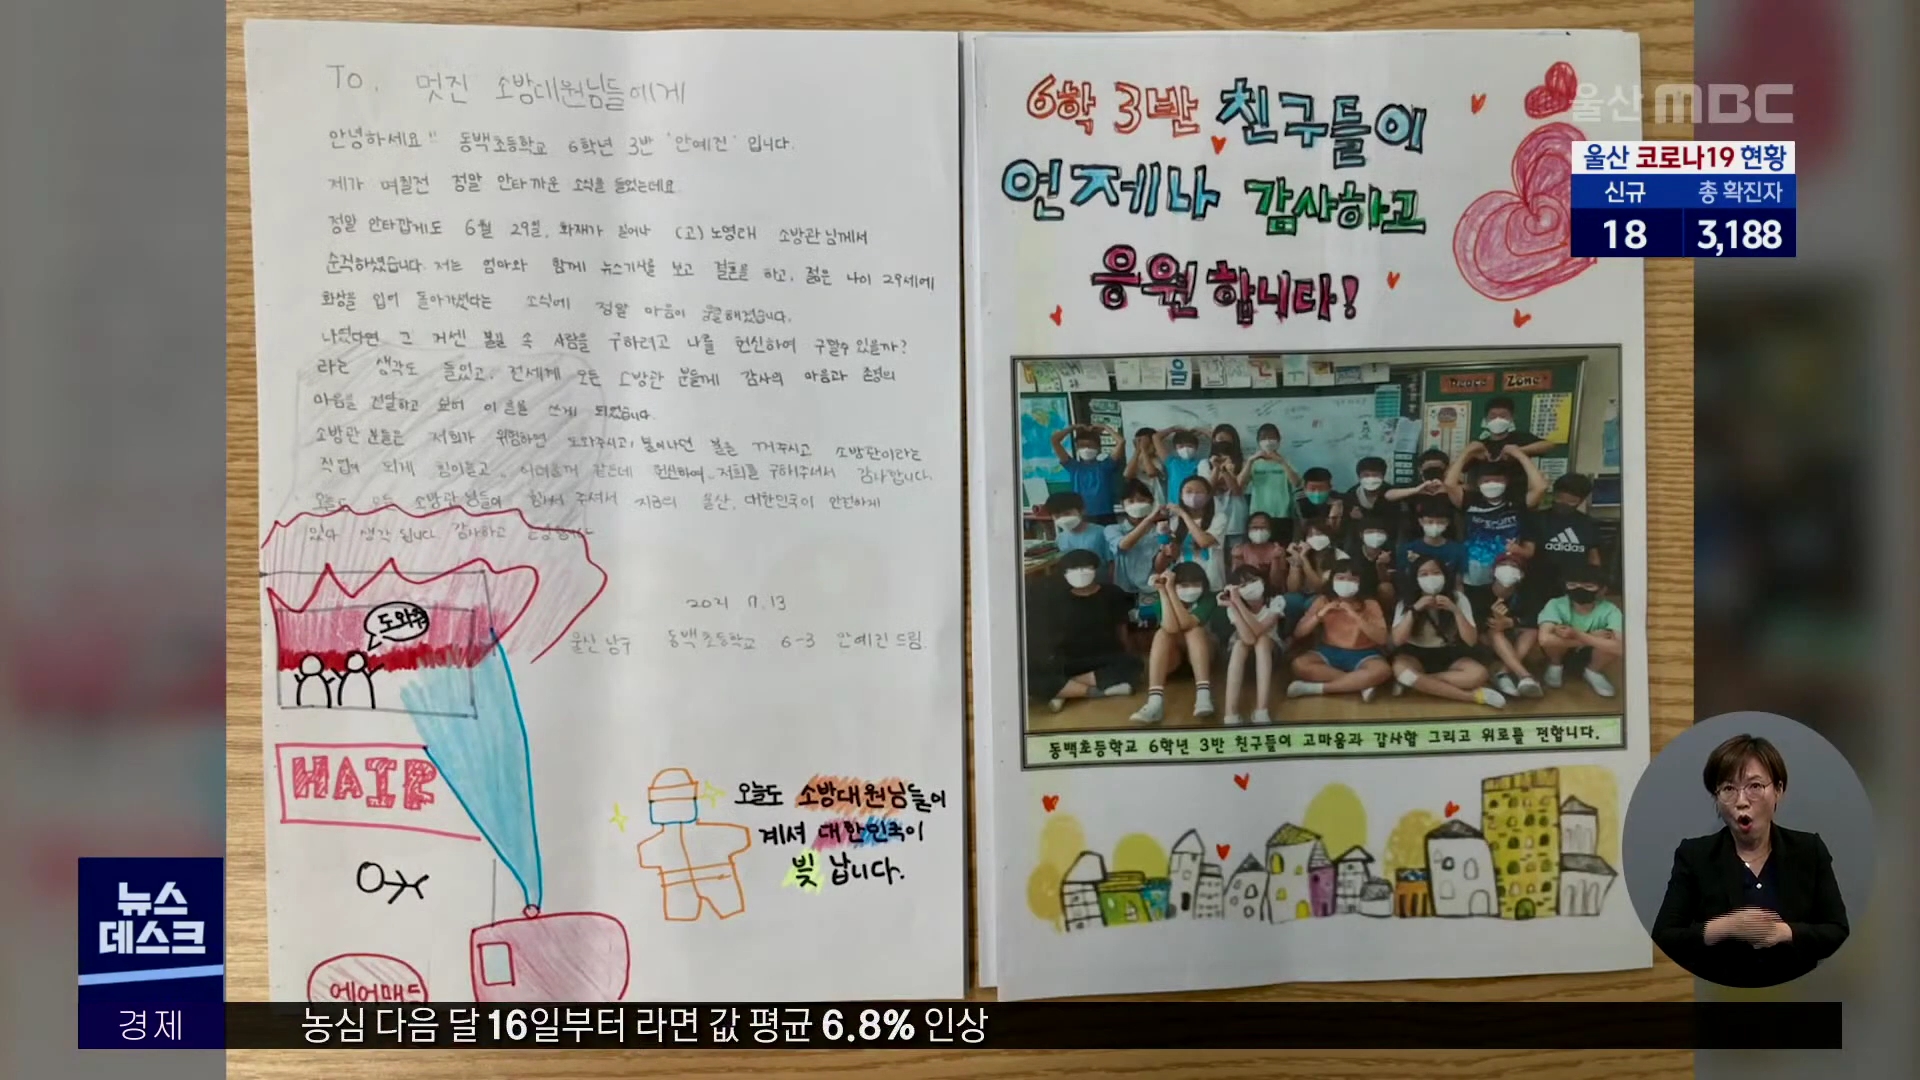 To. 멋진 소방대원님들에게
안녕하세요!! 동백초등학교 6학년 3반 '안예진' 입니다.
제가 며칠전 정말 안타까운 소식을 들었는데요
정말 안타깝게도 6월 29일, 화재가 일어나 (고)노명래 소방관님께서
순직하셨습니다. 저는 엄마와 함께 뉴스기사를 보고 결혼을 하고, 젊은 나이 29세에
화상을 입어 돌아가셨다는 소식에 정말 마음이 뭉클해졌습니다.
나였다면 그 거센 불길 속 사람을 구하려고 나를 헌신하여 구할수 있을까?
라는 생각도 들었고, 전세계 모든 소방관 분들께 감사의 마음과 존경의
마음을 전달하고 싶어 이 글을 쓰게 되었습니다.
소방관 분들은 저희가 위험하면 도와주시고, 불이나면 불을 꺼주시고 소방관이라는
직업이 되게 힘이들고.. 어려울거 같은데 헌신하여.. 저희를 구해주셔서 감사합니다.
오늘도 모든 소방관님들이 힘써 주셔서 지금의 울산, 대한민국이 안전하게
있다 생각 됩니다. 감사하고
2021 7.13
울산 남구 동백초등학교 6-3 안예진 드림.
도와줘
HAIR
에어매트
오늘도 소방대원님들이
계셔 대한민국이
빛 납니다.
6학 3반 친구들이
언제나 감사하고
응원 합니다!
Peace Zone
adidas
동백초등학교 6학년 3반 친구들이 고마움과 감사함 그리고 위로를 전합니다.
울산MBC
울산 코로나19 현황
신규 총 확진자
18 3,188
뉴스
데스크
경제 농심 다음 달 16일부터 라면 값 평균 6.8% 인상